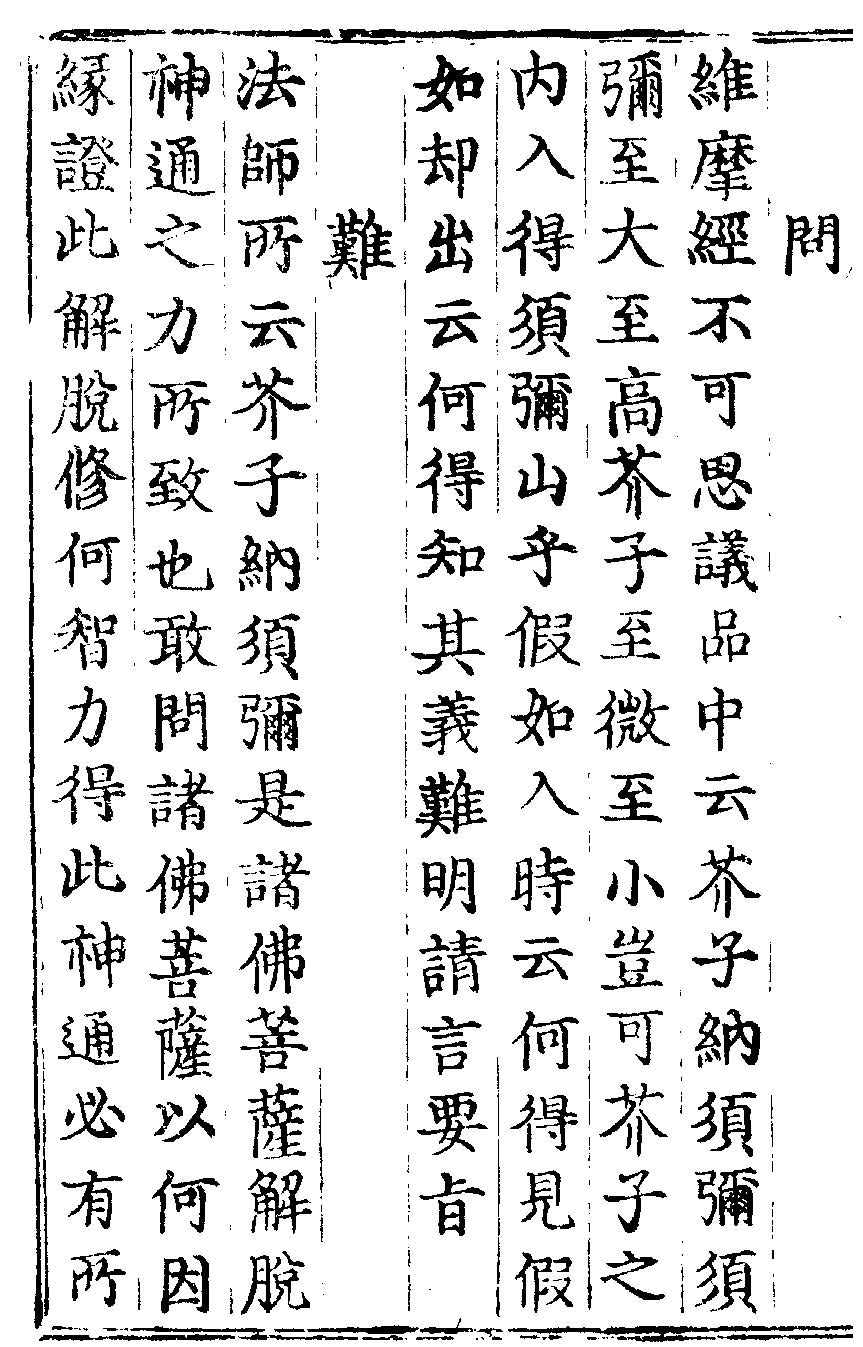 問
維摩經不可思議品中云芥子納須彌須
彌至大至高芥子至微至小豈可芥子之
内入得須彌山乎假如入時云何得見假
如却出云何得知其義難明請言要旨
難
法師所云芥子納須彌是諸佛菩薩解脫
神通之力所致也敢問諸佛菩薩以何因
緣證此解脫修何智力得此神通必有所